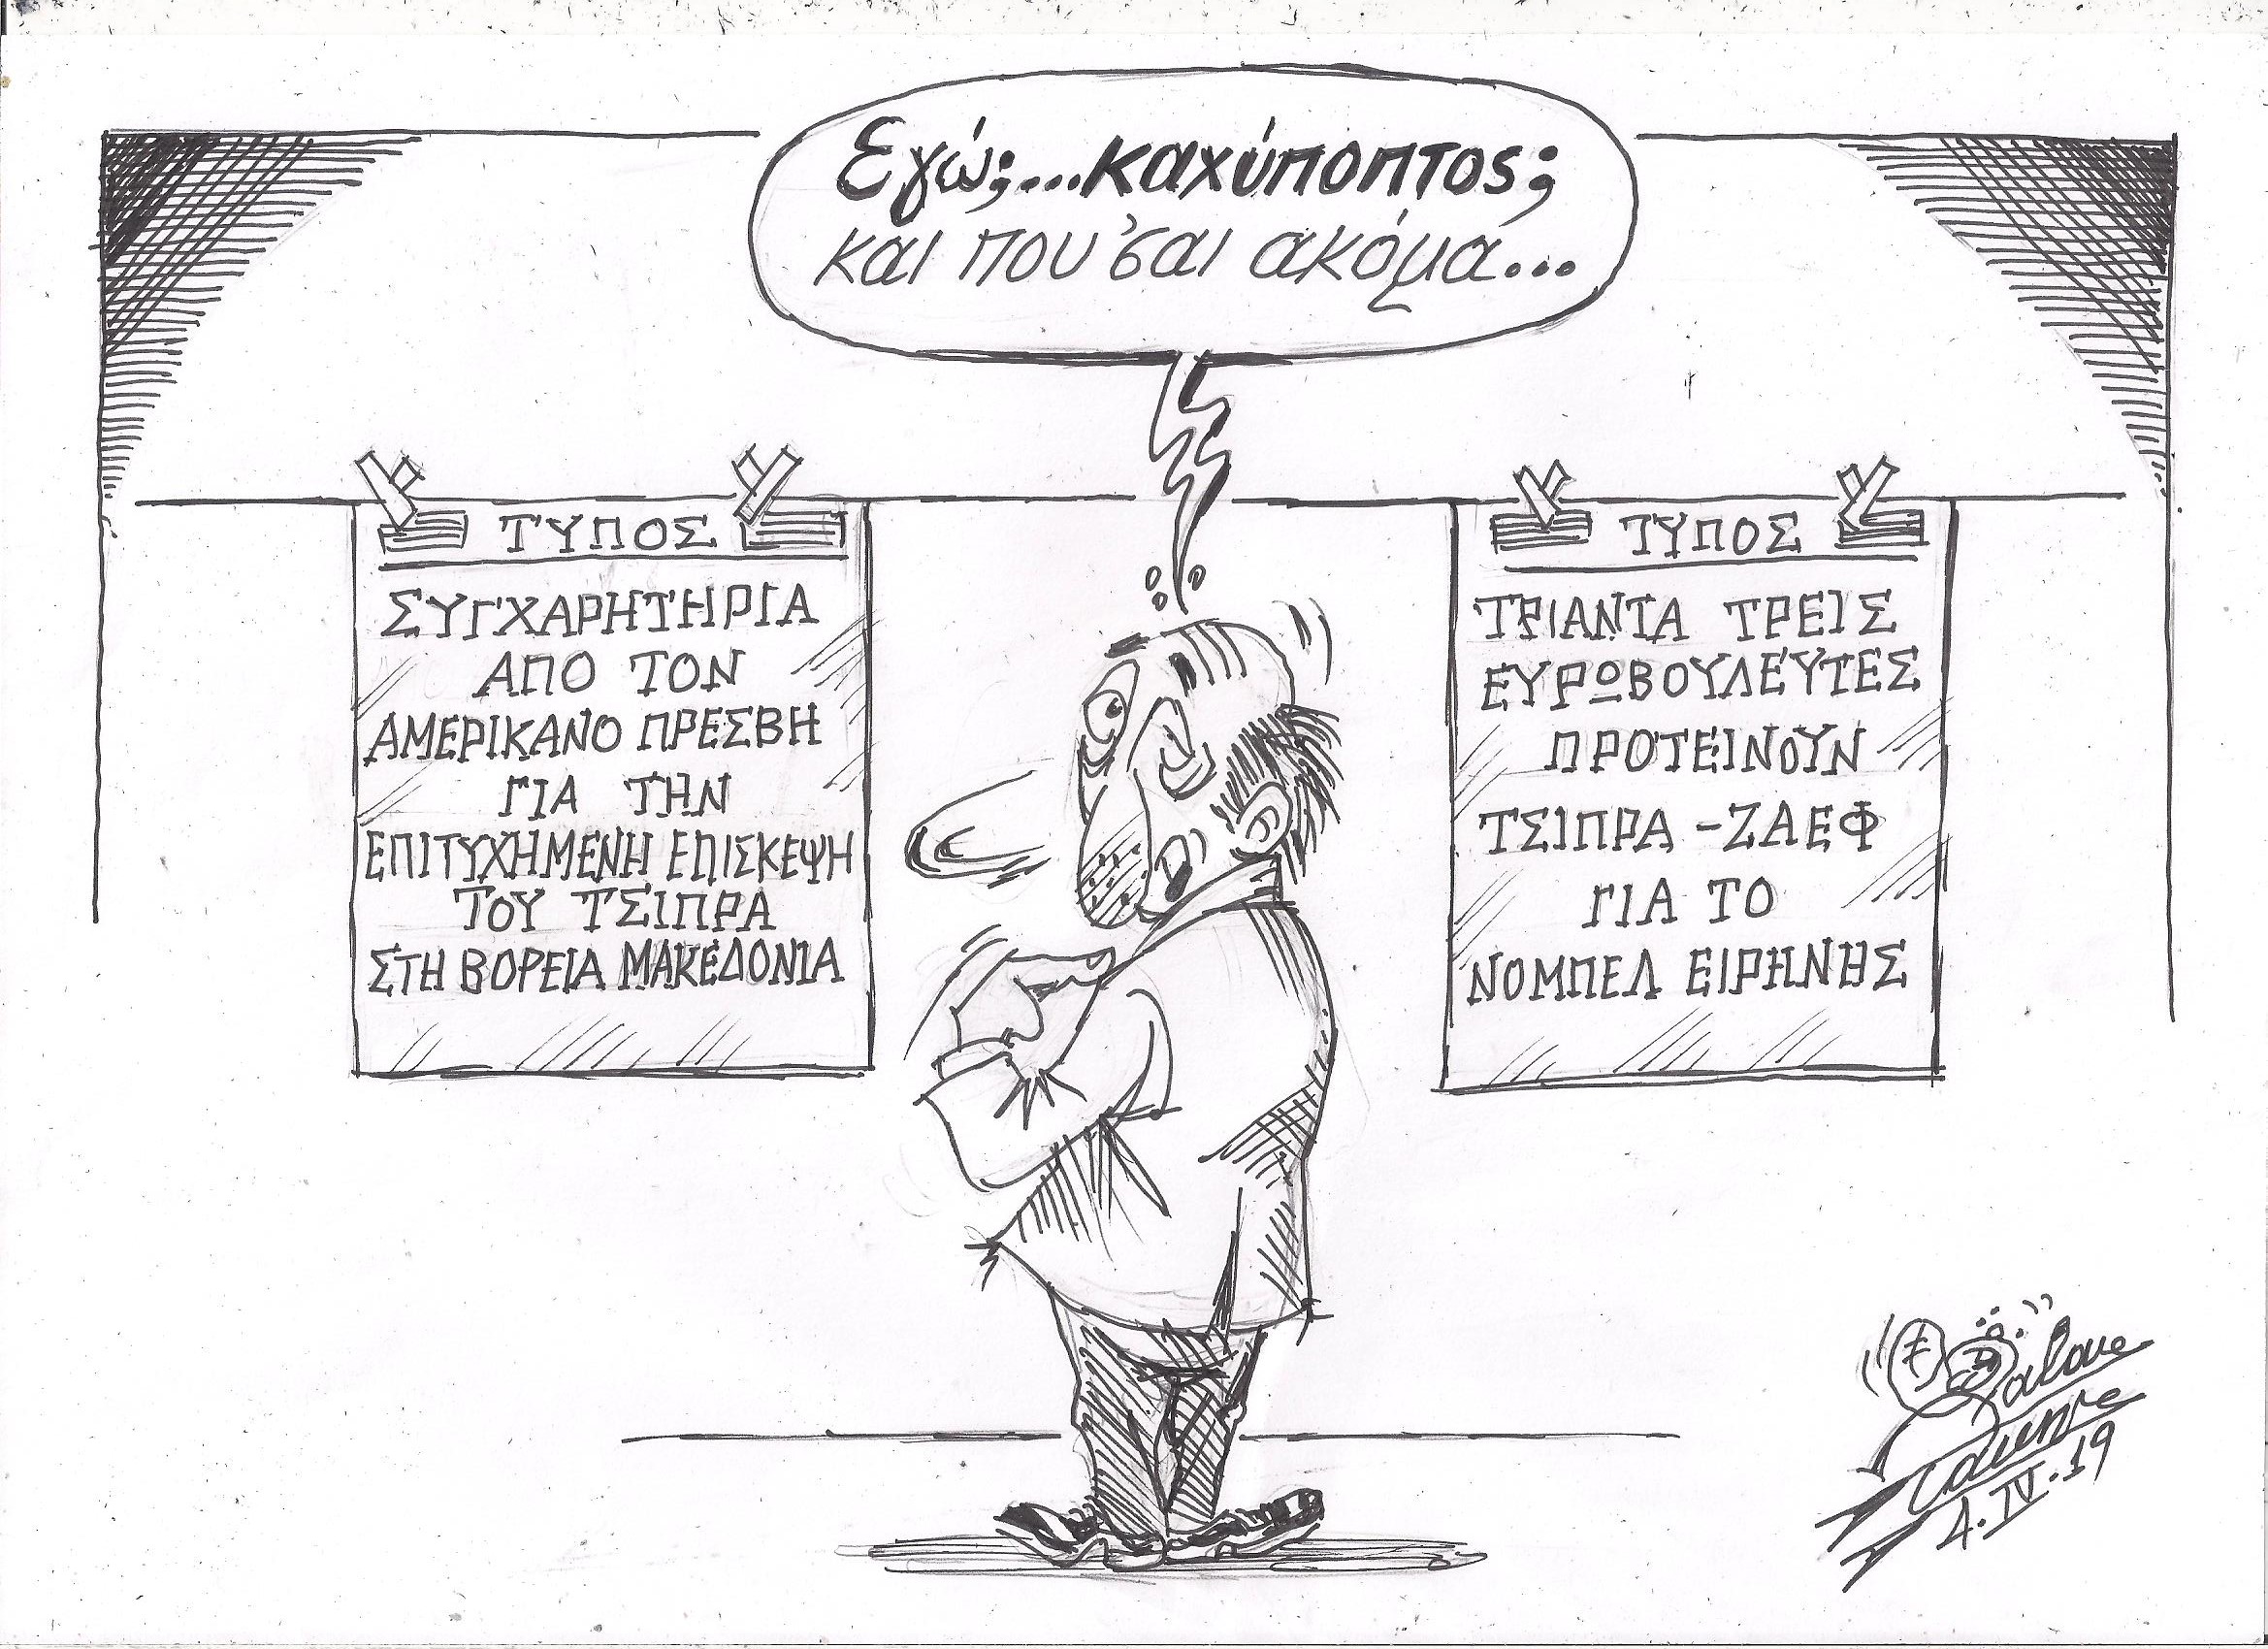 Εγώ;...καχύποπτος;
και που 'σαι ακόμα...
ΤΥΠΟΣ
ΣΥΓΧΑΡΗΤΗΡΙΑ
ΑΠΟ ΤΟΝ
ΑΜΕΡΙΚΑΝΟ ΠΡΕΣΒΗ
ΓΙΑ ΤΗΝ
ΕΠΙΤΥΧΗΜΕΝΗ ΕΠΙΣΚΕΨΗ
ΤΟΥ ΤΣΙΠΡΑ
ΣΤΗ ΒΟΡΕΙΑ ΜΑΚΕΔΟΝΙΑ
ΤΥΠΟΣ
ΤΡΙΑΝΤΑ ΤΡΕΙΣ
ΕΥΡΩΒΟΥΛΕΥΤΕΣ
ΠΡΟΤΕΙΝΟΥΝ
ΤΣΙΠΡΑ - ΖΑΕΦ
ΓΙΑ ΤΟ
ΝΟΜΠΕΛ ΕΙΡΗΝΗΣ
4.IV.19